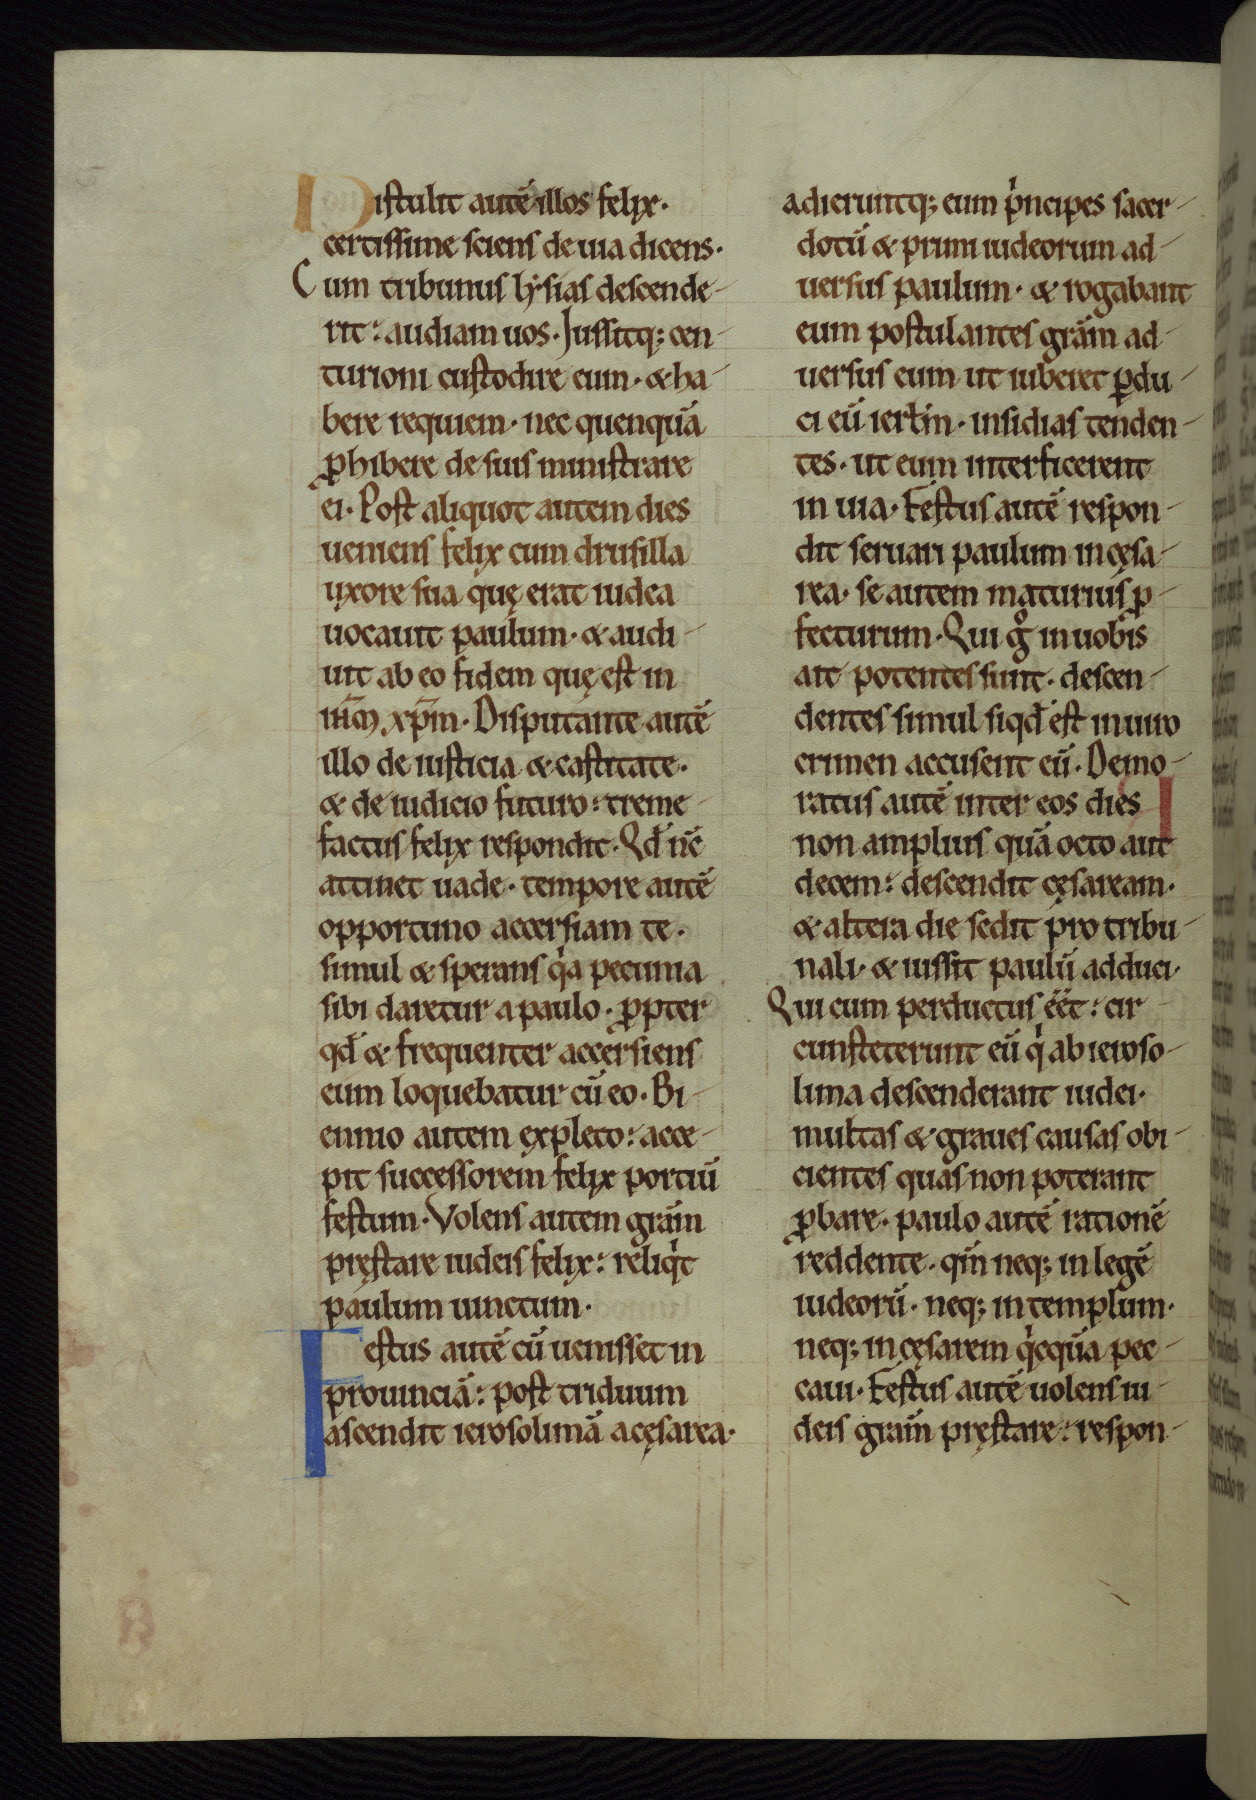 Distulit autē illos felix·
certissime sciens de uia dicens·
Cum tribunus lẏsias descende-
rit: audiam uos· Jussitq; cen-
turioni custodire eum· & ha-
bere requiem· nec quenquā
ꝓhibere de suis ministrare
ei· Post aliquot autem dies
ueniens felix cum drusilla
uxore sua quę erat iudea
uocauit paulum· & audi-
uit ab eo fidem quę est in
ih̅m xp̅m· Disputante autē
illo de iusticia & castitate·
& de iudicio futuro: treme-
factus felix respondit· Qd̄ nc̄
attinet uade· tempore autē
opportuno accersiam te·
simul & sperans qͥa pecunia
sibi daretur a paulo· ꝓpter
qd̄ & frequenter accersiens
eum loquebatur cū eo· Bi-
ennio autem expleto: acce-
pit successorem felix portiū
festum· Volens autem grām
pręstare iudeis felix: reliqͥt
paulum uinctum·
Festus autē cū uenisset in
prouinciā: post triduum
ascendit ierosolimā a cęsarea·
adieruntq; eum pͥncipes sacer-
dotū & primi iudeorum ad-
uersus paulum· & rogabant
eum postulantes grām ad-
uersus eum ut iuberet ꝑdu-
ci eū ierłm· insidias tenden-
tes· ut eum interficerent
in uia· Festus autē respon-
dit seruari paulum in cęsa-
rea· se autem maturius ꝓ-
fecturum· Qui gͦ in uobis
ait potentes sunt· descen-
dentes simul siqd̄ est in uiro
crimen accusent eū· Demo-
ratus autē inter eos dies
non amplius quā octo aut
decem: descendit cęsaream·
& altera die sedit pro tribu-
nali· & iussit paulū adduci·
Qui cum perductus eēt: cir-
cunsteterunt eū qͥ ab ieroso-
lima descenderant iudei·
multas & graues causas obi-
cientes quas non poterant
ꝓbare· paulo autē rationē
reddente· qm̄ neq; in legē
iudeorū· neq; in templum·
neq; in cęsarem qͥcquā pec-
caui· Festus autē uolens iu-
deis grām pręstare: respon-